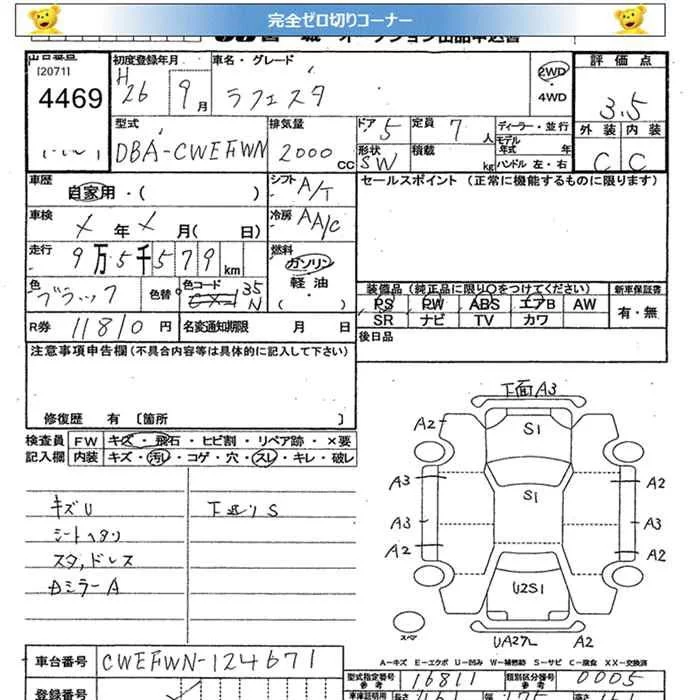 完全ゼロ切りコーナー
オークション出品申込書
出品番号 初度登録年月 車名・グレード 評価点
[2071]
4469 H26 9月 ラフェスタ 2WD ・ 4WD 3.5
型式 排気量 ドア 5 定員 7人 ディーラー・並行 外装 内装
DBA-CWEFWN 2000cc 形状 SW 積載 kg モデル年式 年 ハンドル 左・右 C C
車歴 自家用・( ) シフト A/T セールスポイント (正常に機能するものに限ります)
車検 メ年メ月( 日) 冷房 AA/C
走行 9万5千579km 燃料 ガソリン 軽油 ・ ( )
色 ブラック 色替 色コード 35N
装備品 (純正品に限り〇をつけてください) 新車保証書
PS PW ABS エアB AW 有・無
SR ナビ TV カワ
R券 11810円 名変通知期限 月 日
後日品
注意事項申告欄 (不具合内容等は具体的に記入して下さい)
修復歴 有 〔箇所 〕
検査員 FW キズ・飛石・ヒビ割・リペア跡・×要
記入欄 内装 キズ・汚レ・コゲ・穴・スレ・キレ・破レ
キズU 下廻りS
シートヘタリ
スタッドレス
ミラーA
下面A3
A2 S1
A3 S1 A2
A3 A3
A2 A2
U2S1
スペア UA27L A2
A-キズ E-エクボ U-凹み W-補修跡 S-サビ C-腐食 XX-交換済
車台番号 CWEFWN-124671
型式指定番号 参考 16811 類別区分番号 参考 0005
登録番号